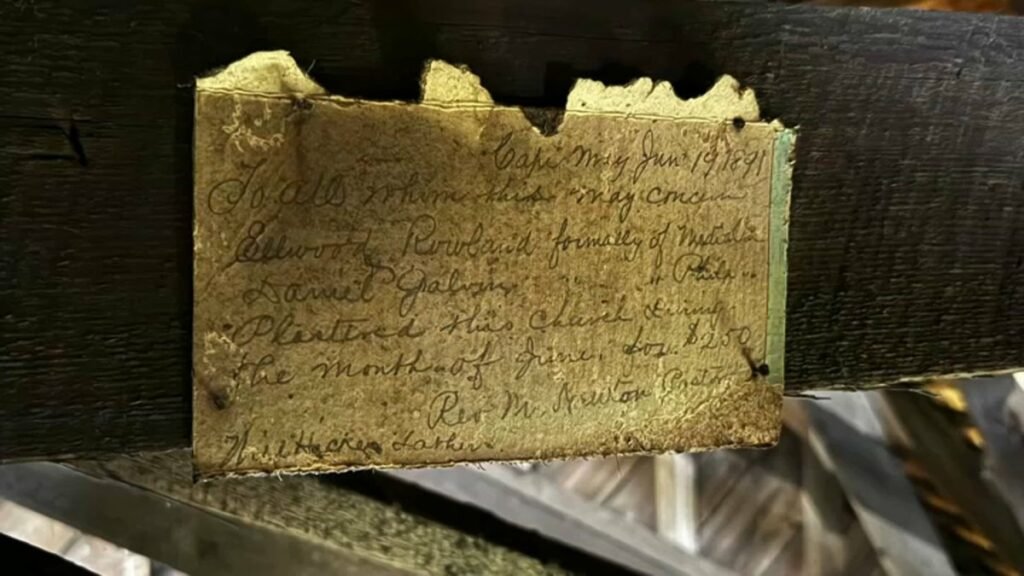 Cape May Jun 19, 1891
To all whom this may concern
Ellwood Rowland formally of
Daniel Galvin " " Phila
Plastered this church during
the month of June, for $250
Rev M. Newton Pastor
Will Lather